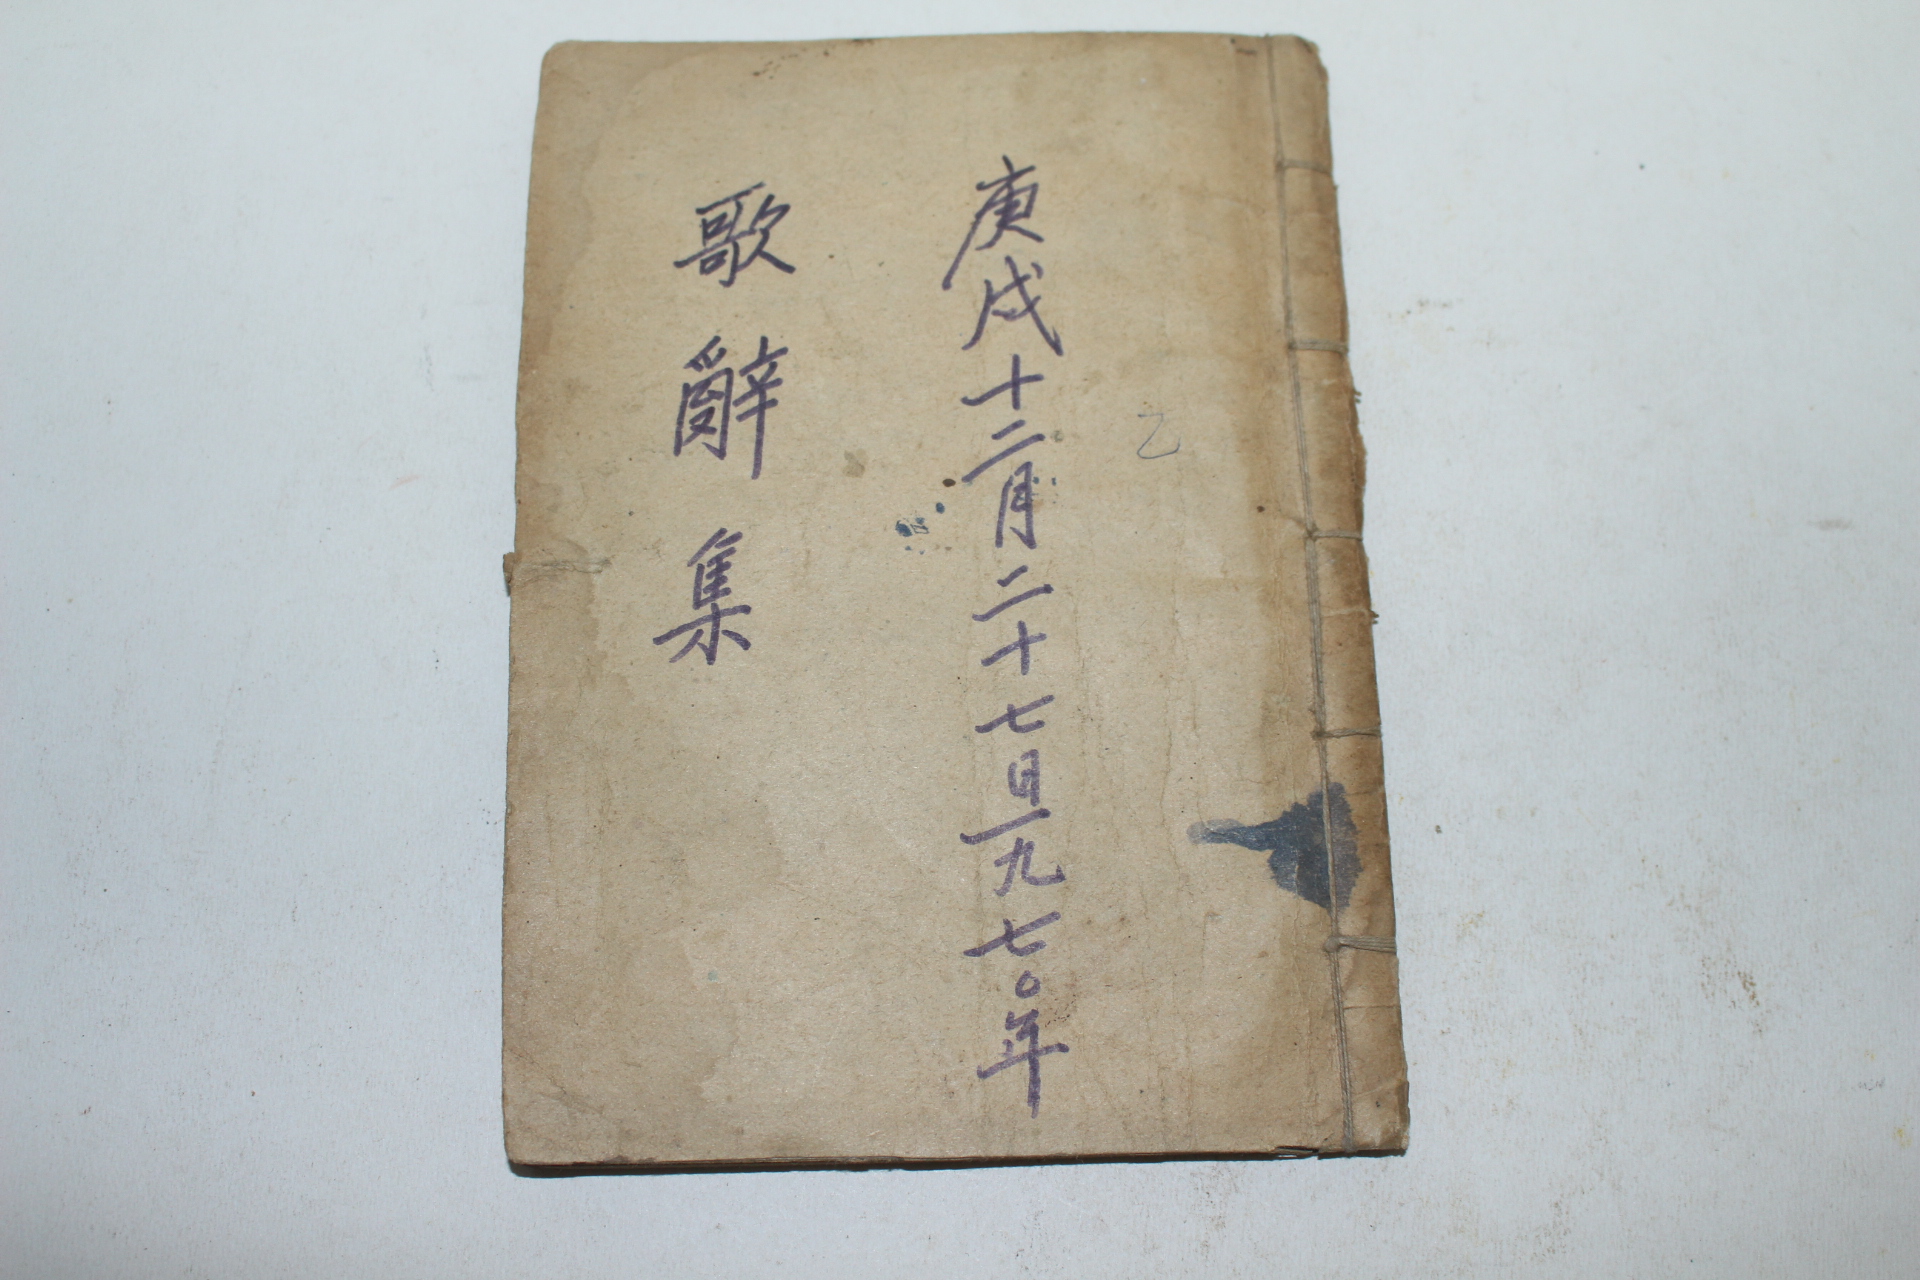 乙
庚戌十二月二十七日一九七〇年
歌辭集